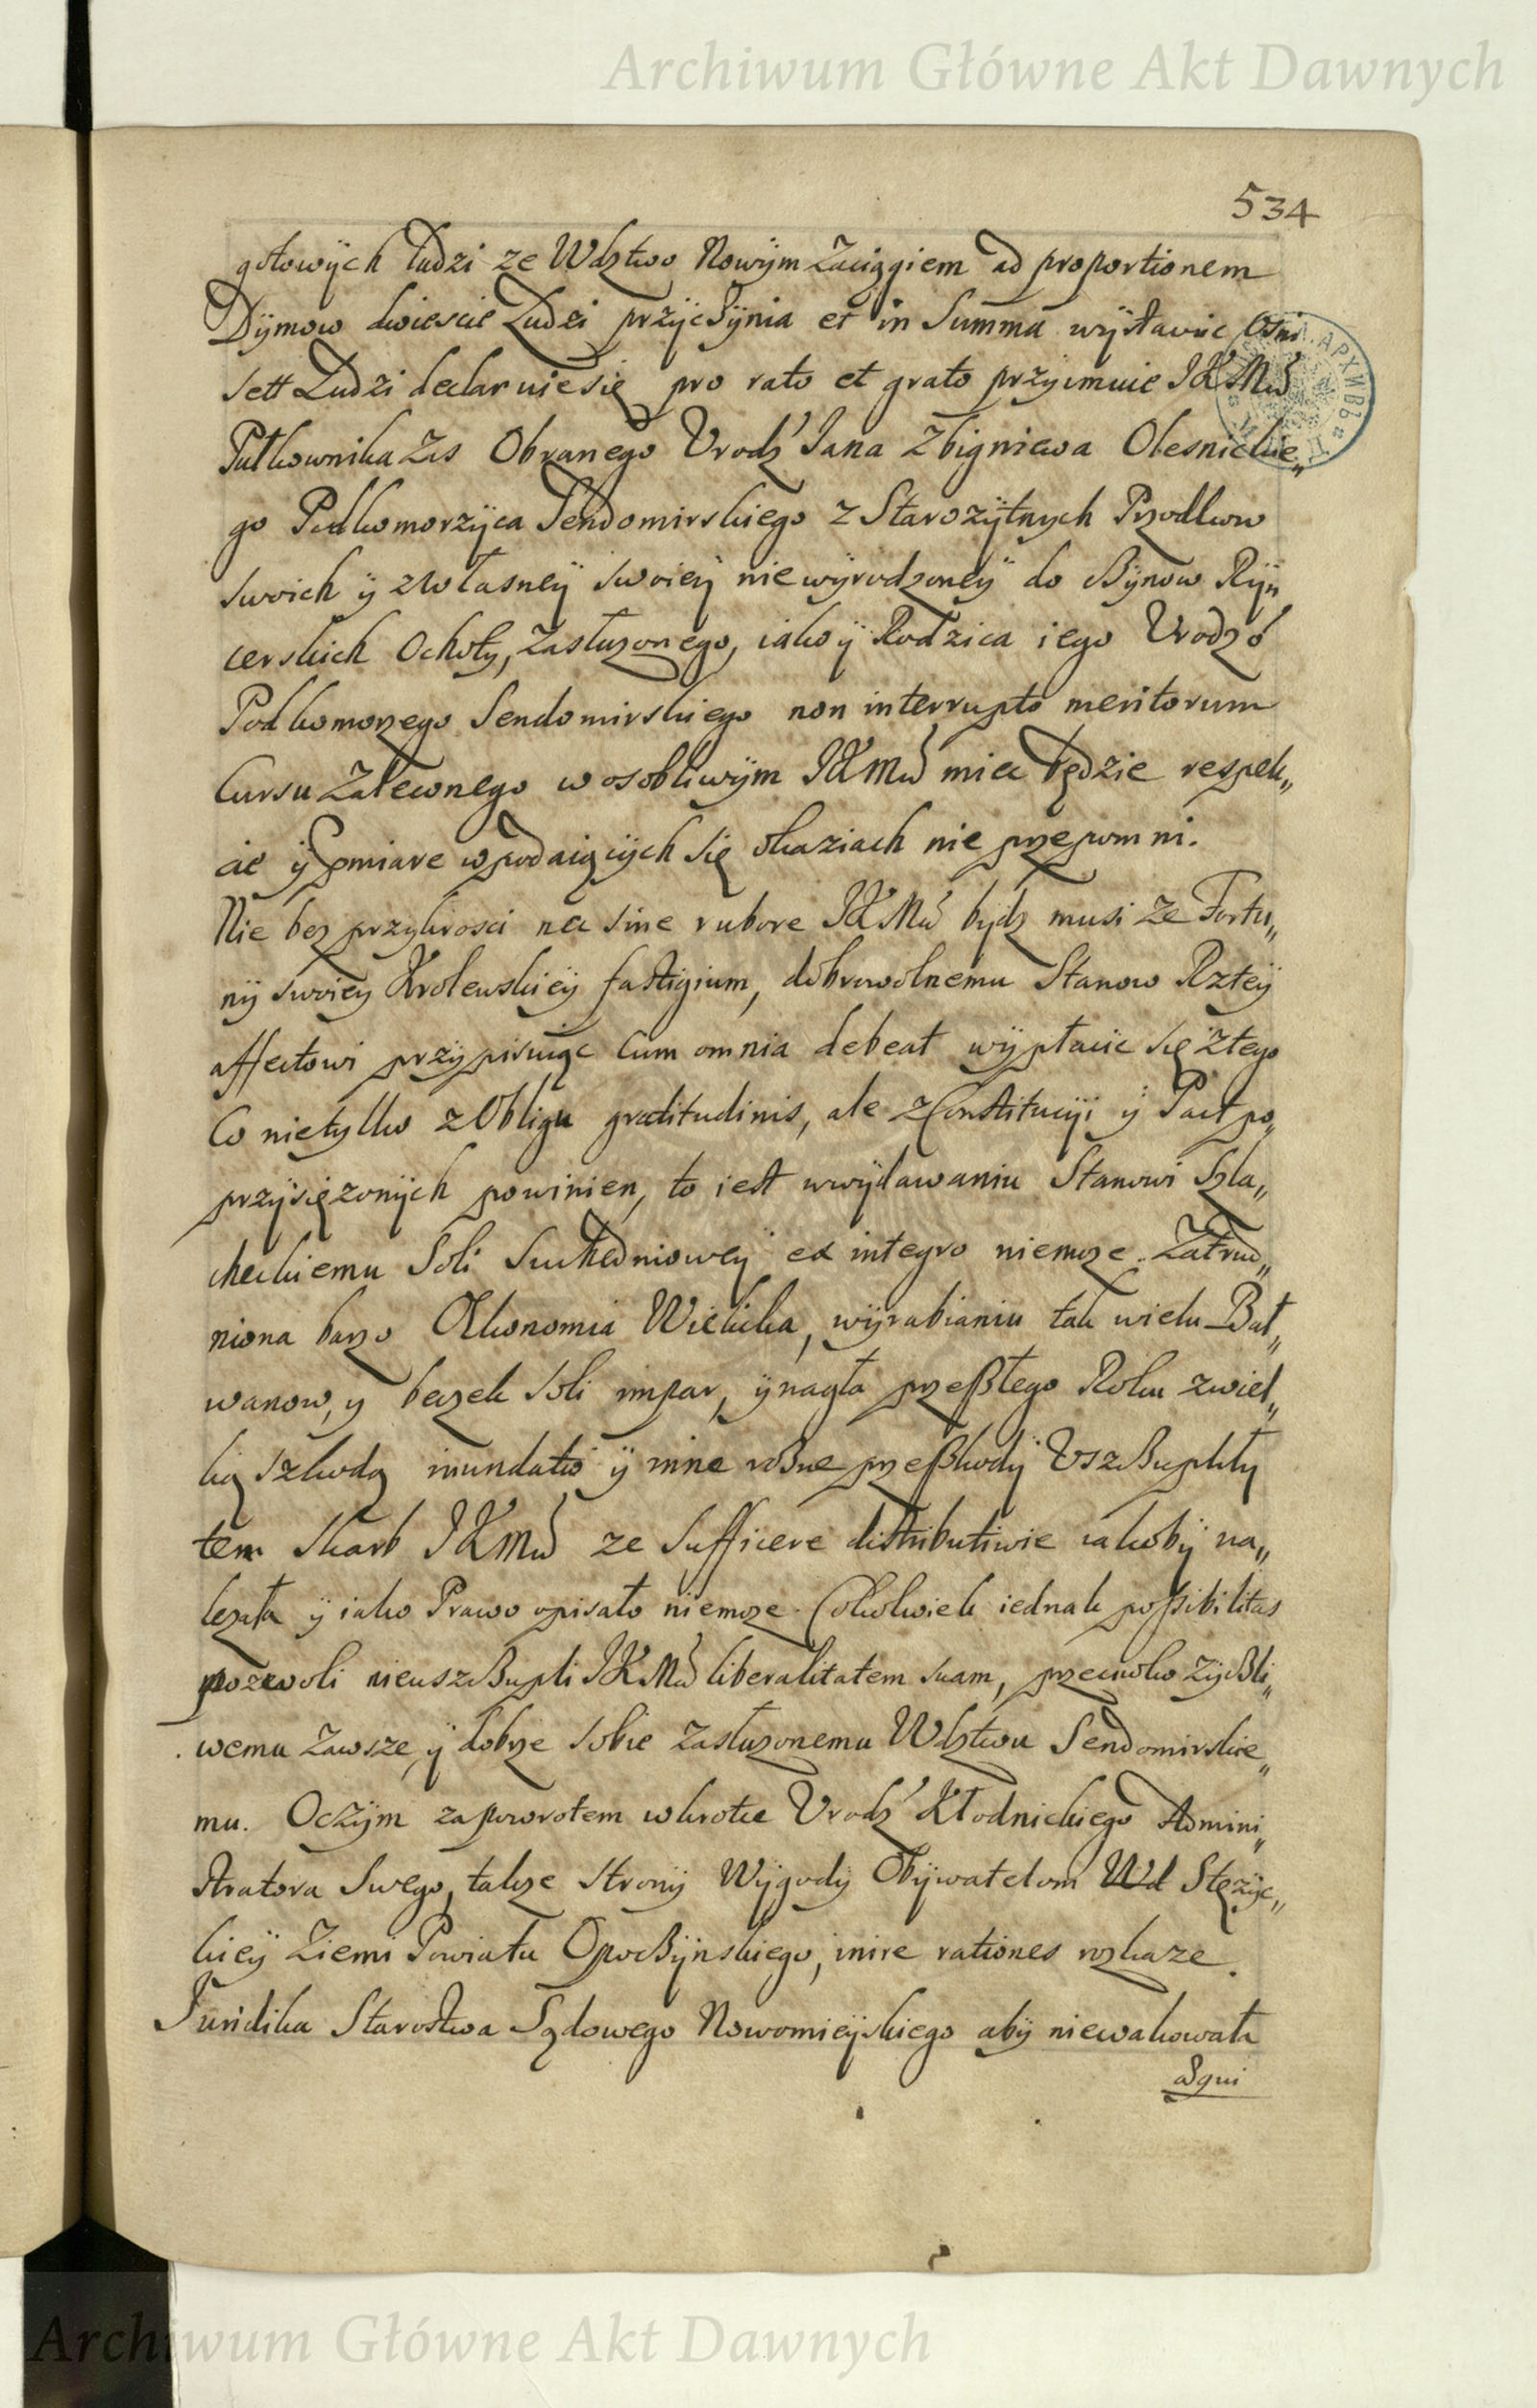 Archiwum Główne Akt Dawnych
534
gotowÿch ludzi ze Wdztwo Nowÿm Zaciągiem ad proportionem
Dÿmow dwiescie Ludzi przÿczÿnia et in Summa wÿstawic Osm
sett Ludzi declaruie się pro rato et grato przyimuie JKMć
Pułkownika Zas Obranego Urodz' Jana Zbigniewa Olesnickie„
go Podkomorzÿca Sendomirskiego z Starozÿtnych Przodkow
swoich ÿ zwłasneÿ swoieÿ niewÿrodzoneÿ do Czÿnow Rÿ„
cerskich Ochoty, Zasłuzonego, iako ÿ Rodzica iego Urodzo
Podkomorzego Sendomirskiego non interrupto meritorum
Cursu Zalewnego w osobliwÿm JKMć miec będzie respek„
cie ÿ wpodaiącÿch się okaziach nie przepomni.
Nie bez przykrosci nec sine rubore JKMć bÿdz musi ze Fortu„
nÿ swoieÿ Krolewskieÿ fastigium, dobrowolnemu Stanow Rzteÿ
affectowi przÿpisuiąc Cum omnia debeat wÿpłacic się ztego
Co nietylko z Obligu gratitudinis, ale z Constitucÿi ÿ Pact po„
przÿsięzonÿch powinien, to iest wwÿdawaniu Stanowi Szla„
checkiemu Soli Suchednioweÿ ex integro niemoze. Zatrud„
niona barzo Okonomia Wielicka, wÿrabianiu tak wielu Bał„
wanow, y beczek Soli impar, ÿ nagła przeszłego Roku zwiel„
ką szkodą inundatio ÿ inne rozne przeszkodÿ Uszczupliły
tem Skarb JKMć ze sufficere distributiwie iakobÿ na„
lezała ÿ iako Prawo opisało niemoze. Cokolwiek iednak possibilitas
pozwoli nieuszczupli JKMć liberalitatem suam, przeciwko zÿczli„
wemu Zawsze, ÿ dobrze sobie Zasłuzonemu Wdztwu Sendomirskie„
mu. Oczÿm zapowrotem wkrotce Urodz' Kłodnickiego Admini„
stratora Swego, takze stronÿ Wÿgodÿ Obÿwatelom Wd Stęzÿc„
kieÿ Ziemi Powiatu Opoczÿnskiego, inire rationes roskaze.
Juridika Starostwa Sądowego Nowomieÿskiego abÿ niewakowała
Archiwum Główne Akt Dawnych